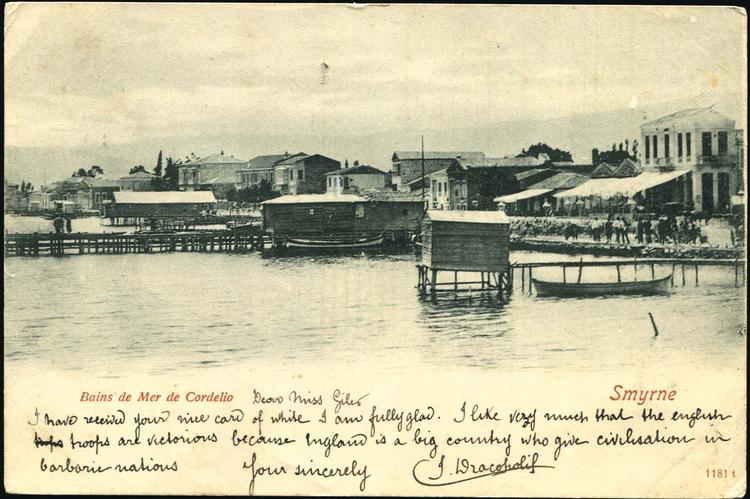 Bains de Mer de Cordelio Dear Miss Giles Smyrne
I have received your nice card of white I am fully glad. I like very much that the english
troops are victorious because England is a big country who give civilisation in
barbaric nations Your sincerely J. Dracoholif
11811